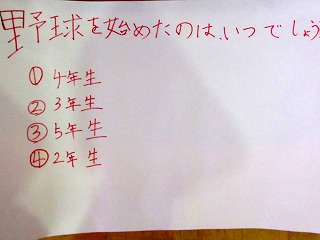 野球を始めたのは、いつでしょう
①4年生
②3年生
③5年生
④2年生